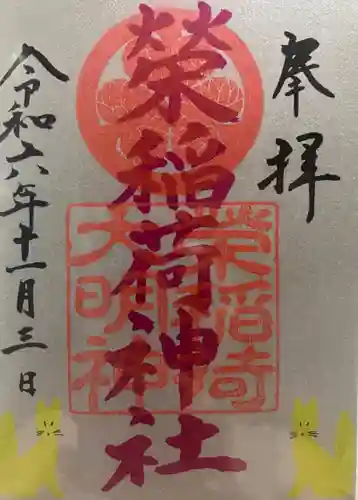 奉拝
榮稲荷神社
令和六年十一月三日
大明神